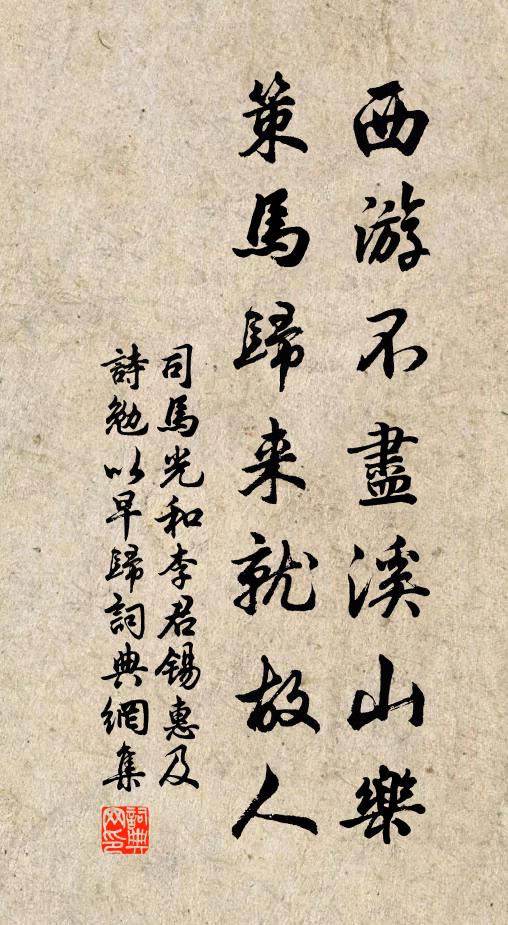 西游不盡溪山樂
策馬歸来就故人
司馬光和李君锡惠及
詩勉以早歸詞典網集
詞典
网印